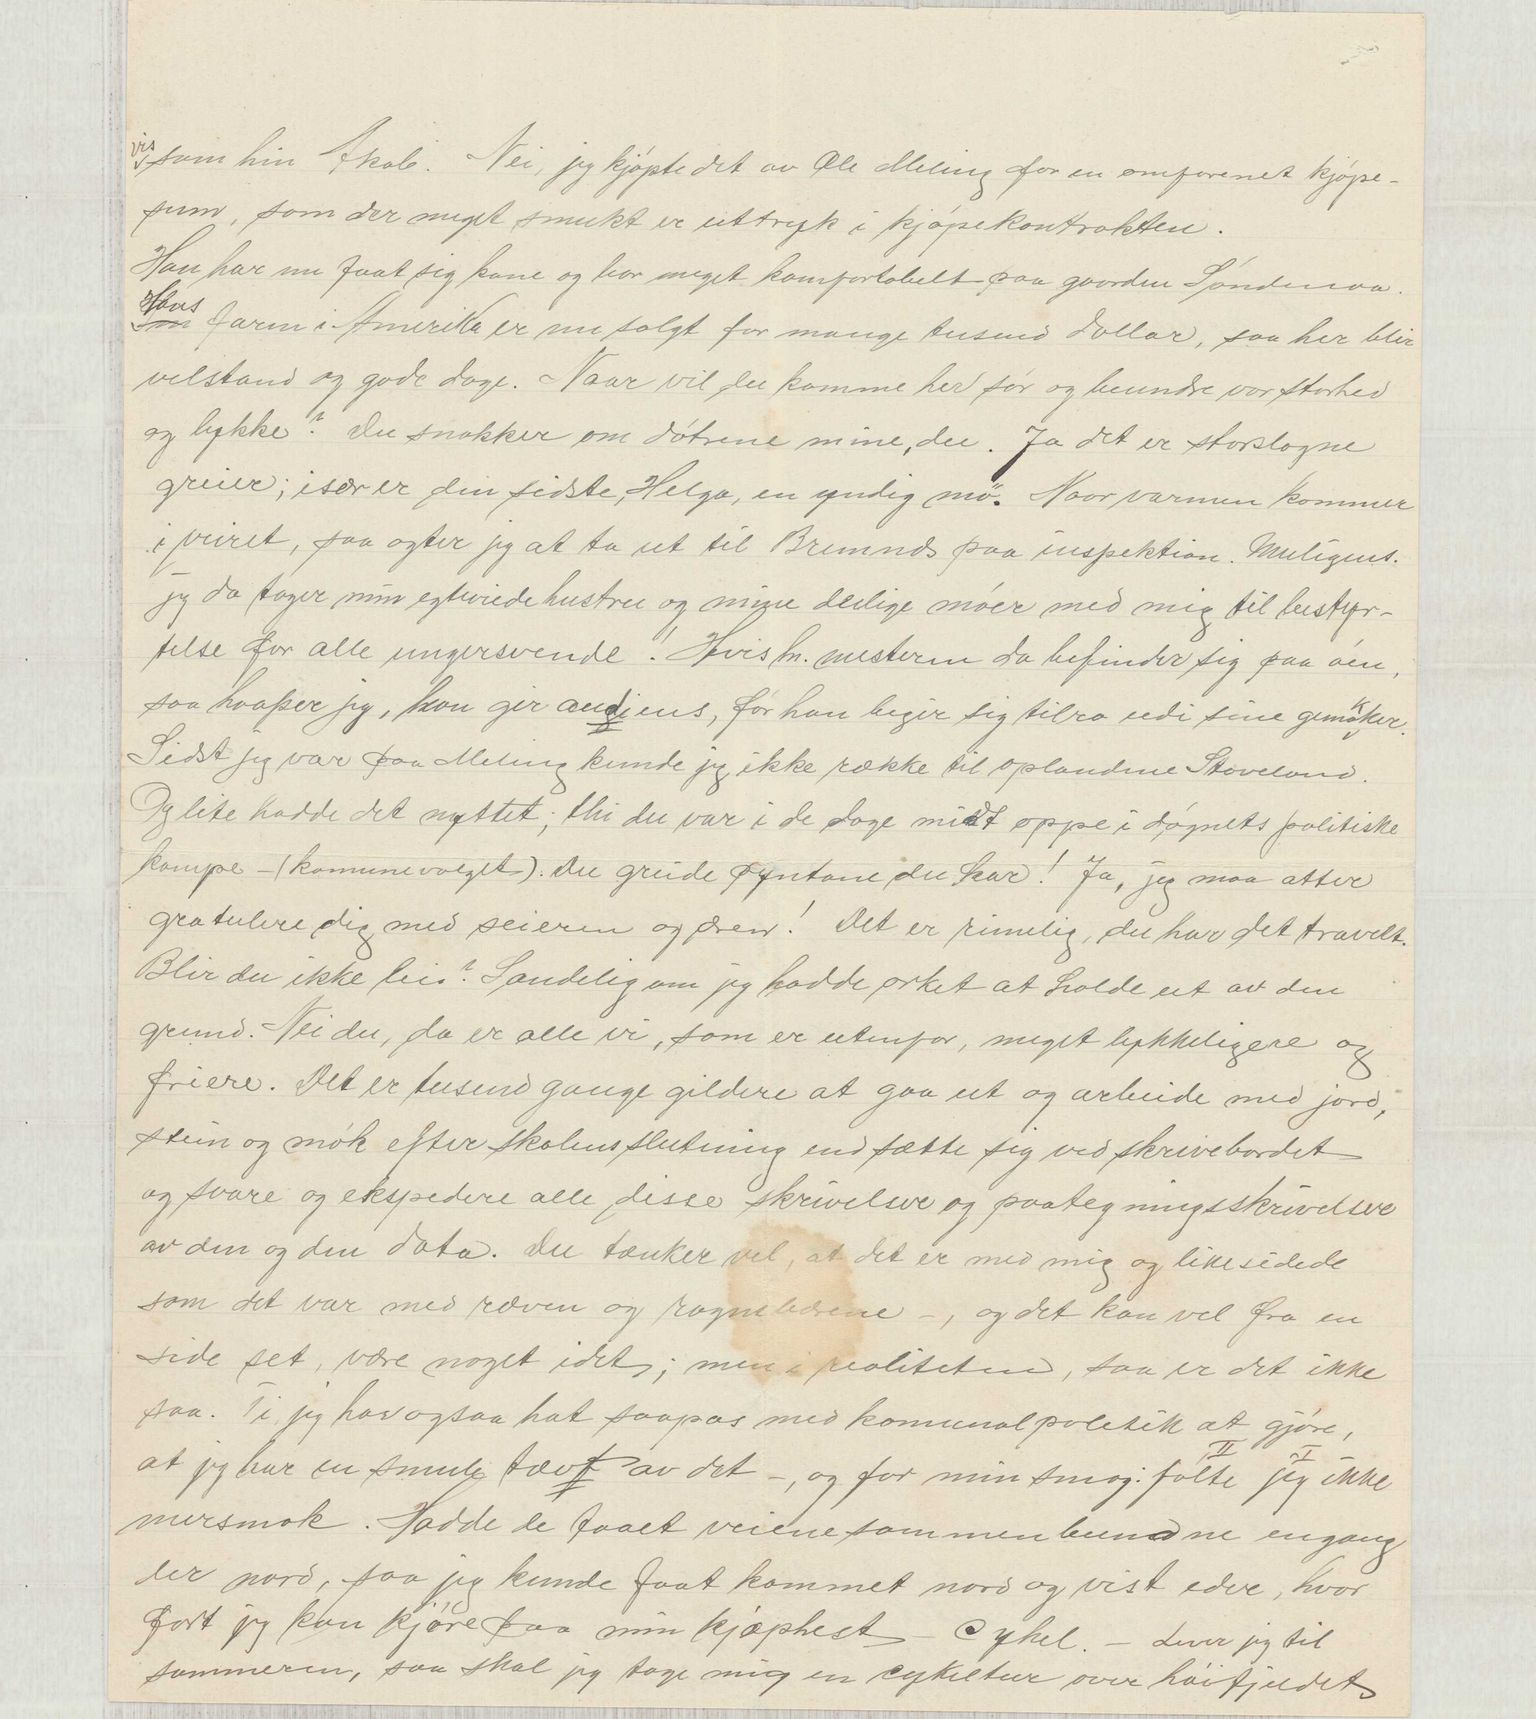 vis
som hin Akab. Nei, jeg kjøpte det av Ole Meling for en omforenet kjøpe-
sum, som der meget smukt er uttrykt i kjøpekontrakten.
Han har nu faat sig kone og bor meget komfortabelt paa gaarden Søndenaa.
Hans farm i Amerika er nu solgt for mange tusend dollar, saa her blir
velstand og gode dage. Naar vil du komme her sør og beundre vor storhed
og lykke? Du snakker om døtrene mine, du. Ja det er storslagne
greier; især er den sidste, Helga, en yndig mø. Naar varmen kommer
i veiret, saa agter jeg at ta ut til Bremnes paa inspektion. Muligens
jeg da tager min egteviede hustru og mine deilige møer med mig til bestyr-
telse for alle ungersvende! Hvis hr. mesteren da befinder sig paa øen,
saa haaper jeg, han gir audiens, før han begir sig tilro udi sine gemakker.
Sidst jeg var paa Meling kunde jeg ikke række til oplandene Staveland.
Og lite hadde det nyttet; thi du var i de dage midt oppe i døgnets politiske
kampe – (kommunevalget). Du greide pyntane du kar! Ja, jeg maa atter
gratulere dig med seieren og æren! Det er rimelig, du har det travelt.
Blir du ikke lei? Sandelig om jeg hadde orket at holde ut av den
grund. Nei du, da er alle vi, som er utenfor, meget lykkeligere og
friere. Det er tusend gange gildere at gaa ut og arbeide med jord,
stein og møk efter skolens slutning end sætte sig ved skrivebordet
og svare og ekspedere alle disse skrivelser og paategningsskrivelser
av den og den data. Du tænker vel, at det er med mig og likesidede
som det var med ræven og rognebærene –, og det kan vel fra en
side set, være noget i det; men i realiteten, saa er det ikke
saa. Ti jeg har ogsaa hat saapas med kommunalpolitik at gjøre,
at jeg har en smule tæft av det –, og for min smag følte jeg ikke
mersmak. Hadde de faaet veiene sammenbundne engang
der nord, saa jeg kunde faat kommet nord og vist eder, hvor
fort jeg kan kjøre paa min kjæphest – Cykel. – Lever jeg til
sommeren, saa skal jeg tage mig en cykeltur over høifjeldet